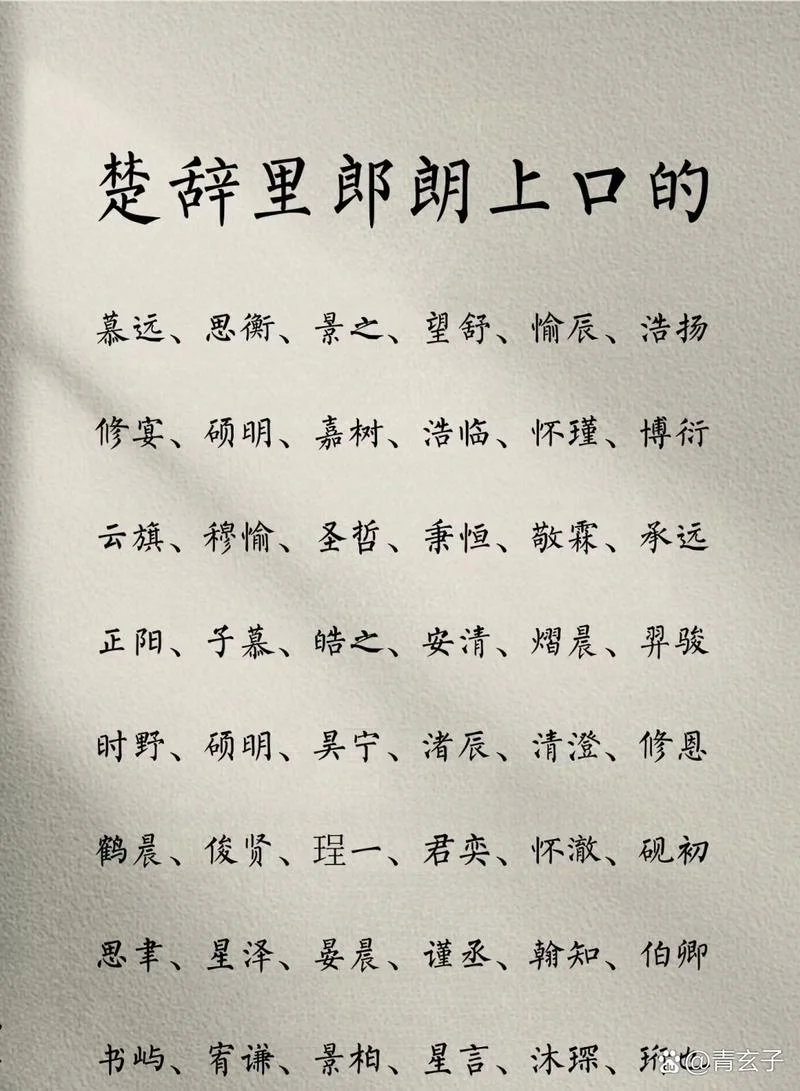 楚辞里郎朗上口的
慕远、思衡、景之、望舒、愉辰、浩扬
修宴、硕明、嘉树、浩临、怀瑾、博衍
云旗、穆愉、圣哲、秉恒、敬霖、承远
正阳、子慕、皓之、安清、熠晨、羿骏
时野、硕明、昊宁、渚辰、清澄、修恩
鹤晨、俊贤、珵一、君奕、怀澈、砚初
思聿、星泽、晏晨、谨丞、翰知、伯卿
书屿、宥谦、景柏、星言、沐琛、珩也
@青玄子